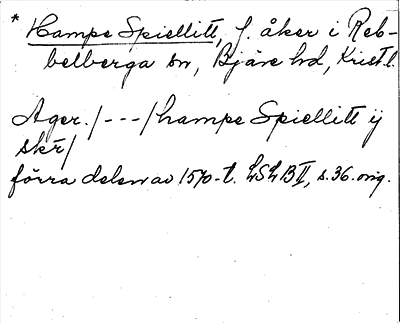 * Hampe Spiellitt, f. åker i Reb-
belberga sn, Bjäre hd, Krist.l.
Ager. /---/ hampe Spiellitt ij
skr/
förra delen av 1570-t. LSLB II, s. 36. orig.